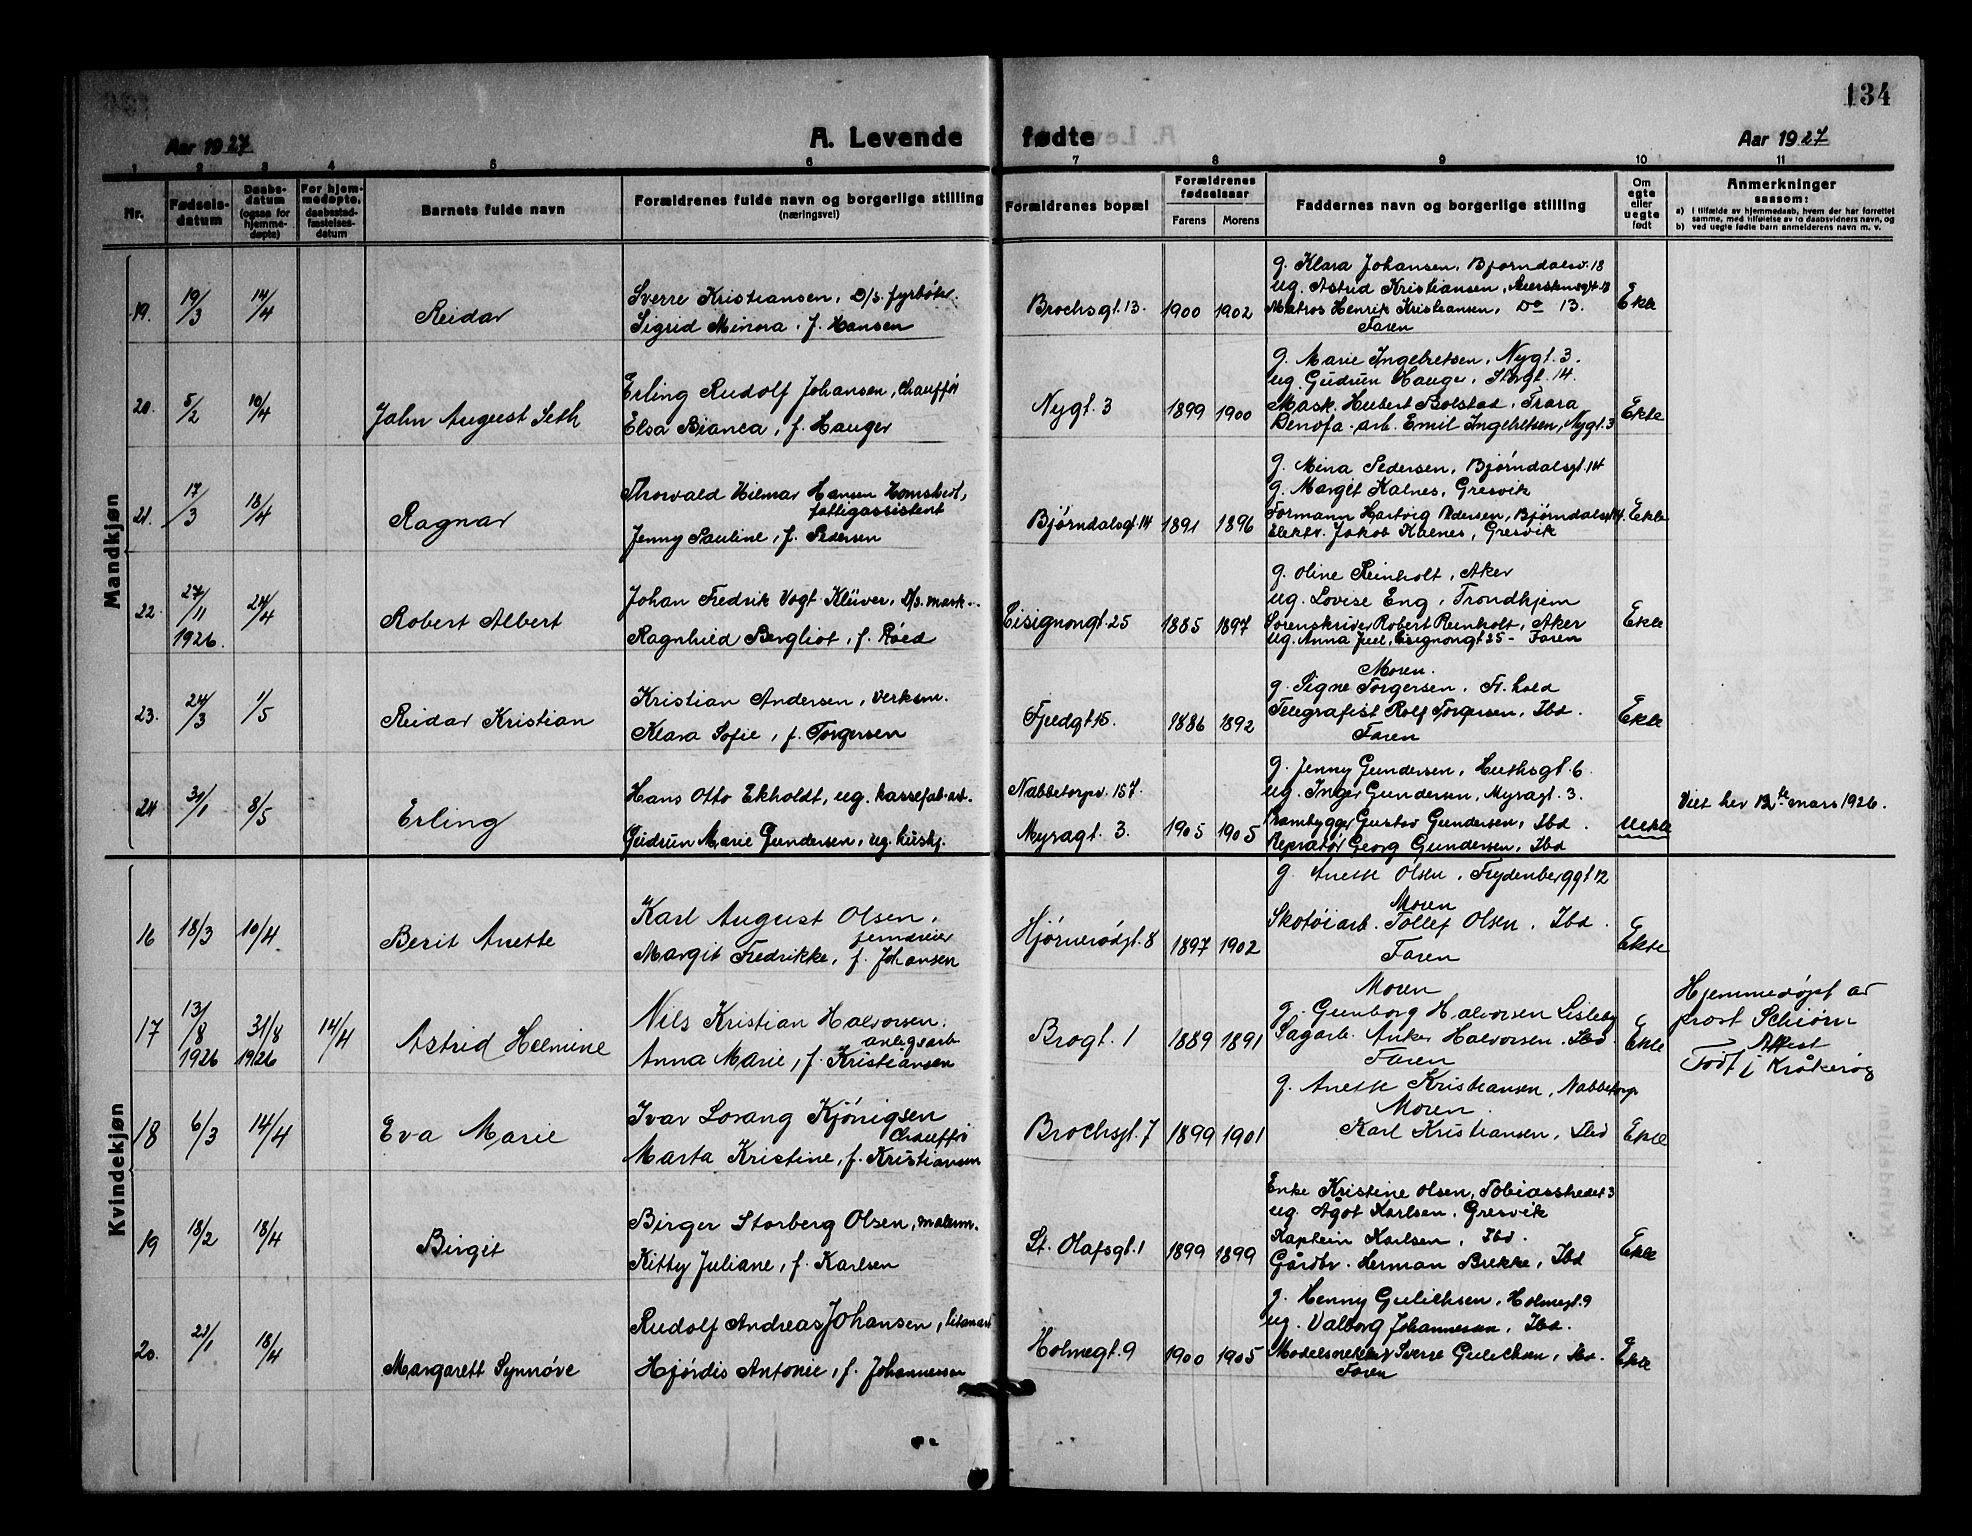 134
Aar 1927
A. Levende fødte
Aar 1927
1 2 3 4 5 6 7 8 9 10 11
Nr.
Fødsels-
datum
Daabs-
datum
(ogsaa for
hjemme-
døpte)
For hjem-
medøpte,
daabestad-
fæstelses-
datum
Barnets fulde navn
Forældrenes fulde navn og borgerlige stilling
(næringsvei)
Forældrenes bopæl
Forældrenes
fødselsaar
Farens Morens
Faddernes navn og borgerlige stilling
Om
egte
eller
uegte
født
Anmerkninger
saasom:
a) i tilfælde av hjemmedaab, hvem der har forrettet
samme, med tilføielse av to daabsvidners navn, og
b) ved uegte fødte barn anmelderens navn m. v.
Mandkjøn
19. 19/3 14/4 Reidar
Sverre Kristiansen, D/S. fyrbøter.
Sigrid Minora, f. Hansen
Brochsgt. 13. 1900 1902
g. Klara Johansen, Bjørndalsv. 18
ug. Astrid Kristiansen,
Matros Henrik Kristiansen, Do 13.
Faren
Ekte
20. 5/2 10/4 Jahn August Seth
Erling Rudolf Johansen, Chauffør
Elsa Bianca, f. Hauger
Nygt. 3 1899 1900
g. Marie Ingebretsen, Nygt. 3.
ug. Gudrun Hauge, Storgt. 14.
Mask. Hubert Bolstad, Trara
Denofa-arb. Emil Ingebretsen, Nygt. 3
Ekte
21. 17/3 18/4 Ragnar
Thorvald Hilmar Hansen Homstvedt,
fattigassistent
Jenny Pauline, f. Pedersen
Bjørndalsgt 14 1891 1896
g. Mina Pedersen, Bjørndalsgt. 14
g. Margit Kalnes, Gresvik
Formann Hartvig Pedersen, Bjørndalsgt 14.
Elektr. Jakob Kalnes, Gresvik
Ekte
22. 27/11 1926. 24/4 Robert Albert
Johan Fredrik Vogt Klüver, D/S. mask.
Ragnhild Bergliot, f. Røed
Cisignongt. 25 1885 1897
g. Oline Reinholt, Aker
ug. Lovise Eng, Trondhjem
Sorenskriver Robert Reinholt, Aker
ug. Anna Juel, Cisignongt 25 - Faren
Ekte
23. 24/3 1/5 Reidar Kristian
Kristian Andersen, verksm.
Klara Sofie, f. Torgersen
Fjeldgt 15. 1886 1892
Moren.
g. Signe Torgersen, Fr.hald
Telegrafist Rolf Torgersen, Ibd.
Faren
Ekte
24 31/1 8/5 Erling
Hans Otto Ekholdt, ug. kassefab-arb.
Gudrun Marie Gundersen, ug. hushj.
Nabbetorpv. 157.
Myragt. 3. 1905 1905
g. Jenny Gundersen, Huthsgt. 6.
ug. Inger Gundersen, Myragt. 3.
Prambygger Gustav Gundersen, Ibd.
Repratør Georg Gundersen, Ibd
Uekte
Viet her 12te mars 1926.
Kvindekjøn
16 18/3 10/4 Berit Anette
Karl August Olsen,
jerndreier
Margit Fredrikke, f. Johansen
Hjørnerødgt. 8 1897 1902
g. Anette Olsen, Frydenberggt 12
Moren
Skotøiarb. Tollef Olsen, Ibd.
Faren
Ekte
17 13/8 1926 31/8 1926 14/4 Astrid Helmine
Nils Kristian Halvorsen,
anlegsarb
Anna Marie, f. Kristiansen
Brogt. 1 1889 1891
Moren
g. Gunborg Halvorsen Lisleby
Sagarb. Anker Halvorsen. Ibd.
Faren
Ekte
Hjemmedøpt av
prost Schiørn
Attest
Født i Kråkerøy
18 6/3 14/4 Eva Marie
Ivar Lorang Kjønigsen
Chauffør
Marta Kristine, f. Kristiansen
Brochsgt. 7 1899 1901
g. Anette Kristiansen, Nabbetorp
Moren.
Karl Kristiansen, Ibd
Ekte
19 18/2 18/4 Birgit
Birger Storberg Olsen, malerm.
Kitty Juliane, f. Karlsen
St. Olafsgt. 1 1899 1899
Enke Kristine Olsen, Tobiasstredet 3
ug. Ågot Karlsen, Gresvik
Kaptein Karlsen, Ibd.
Gårdbr. Herman Brekke, Ibd
Ekte
20. 21/1 18/4 Margarett Synnøve
Rudolf Andreas Johansen,
Hjørdis Antonie, f. Johannesen
Holmegt. 9 1900 1905
g. Henny Gulichsen, Holmegt. 9
ug. Valborg Johannesen, Ibd.
Modelsnekker Sverre Gulichsen, Ibd.
Faren
Ekte